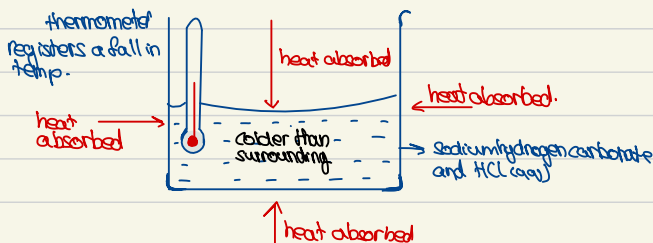 thermometer
registers a fall in
temp.
heat absorbed
heat absorbed.
heat
absorbed
colder than
surrounding
sodiumhydrogen carbonate
and HCl (aq)
heat absorbed